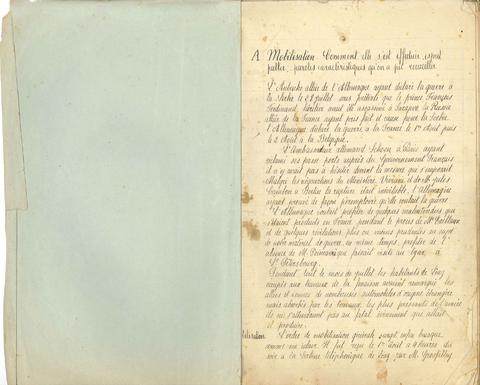 A Mobilisation Comment elle s'est effectuée, esprit
public, paroles caractéristiques qu'on a pu recueillir
L'Autriche alliée de l'Allemagne ayant déclaré la guerre à
la Serbie le 28 juillet sous prétexte que le prince François
Ferdinand, héritier avait été assassiné à Sarajevo, la Russie
alliée de la France ayant pris fait et cause pour la Serbie
l'Allemagne déclara la guerre à la France le 1er Août puis
le 2 Août à la Belgique.
L'Ambassadeur allemand Schoen à Paris ayant
réclamé ses passe ports auprès du Gouvernement Français
il n'y avait pas à hésiter devant la mesure qui s'imposait
Malgré les négociations du Ministère Viviani et de M. Jules
Cambon à Berlin la rupture était inévitable, l'Allemagne
ayant prouvé de façon péremptoire qu'elle voulait la guerre
L'Allemagne voulait profiter de quelques malentendus qui
s'étaient produits en France pendant le procès de Mme Caillaux
et de quelques révélations plus ou moins produites au sujet
de notre matériel de guerre, en même temps, profiter de l'
absence de M. Poincaré qui faisait visite au tzar à
St Pétersbourg.
Pendant tout le mois de juillet les habitants de
occupés aux travaux de la fenaison avaient remarqué les
allées et venues de nombreuses automobiles d'origine étrangère
mais absorbés par les travaux les plus pressants de l'année
ils ne s'attendaient pas au fatal événement qui allait
se produire.
L'ordre de mobilisation générale surgit enfin brusque
comme un éclair. Il fut reçu le 1er Août à 4 heures du
soir à la station téléphonique de par M.